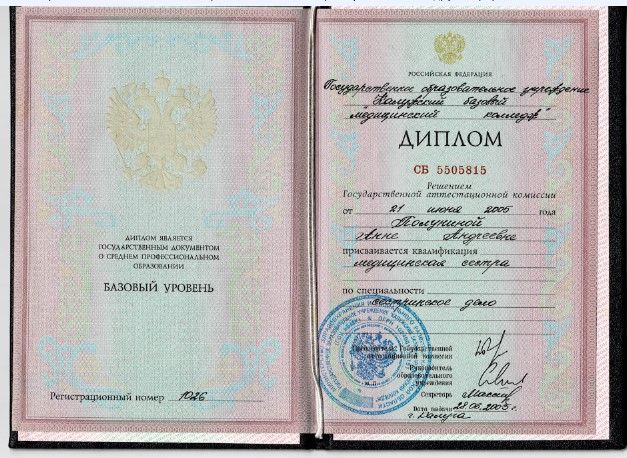 ДИПЛОМ ЯВЛЯЕТСЯ
ГОСУДАРСТВЕННЫМ ДОКУМЕНТОМ
О СРЕДНЕМ ПРОФЕССИОНАЛЬНОМ
ОБРАЗОВАНИИ
БАЗОВЫЙ УРОВЕНЬ
Регистрационный номер 1026
РОССИЙСКАЯ ФЕДЕРАЦИЯ
Государственное образовательное учреждение
"Калужский базовый
медицинский колледж"
ДИПЛОМ
СБ 5505815
Решением
Государственной аттестационной комиссии
от 21 июня 2005 года
Полуниной
Анне Андреевне
присваивается квалификация
медицинская сестра
по специальности
сестринское дело
Председатель Государственной
аттестационной комиссии
Руководитель
образовательного
учреждения
Секретарь
М.П.
Дата выдачи 28.06.2005г.
г. Калуга